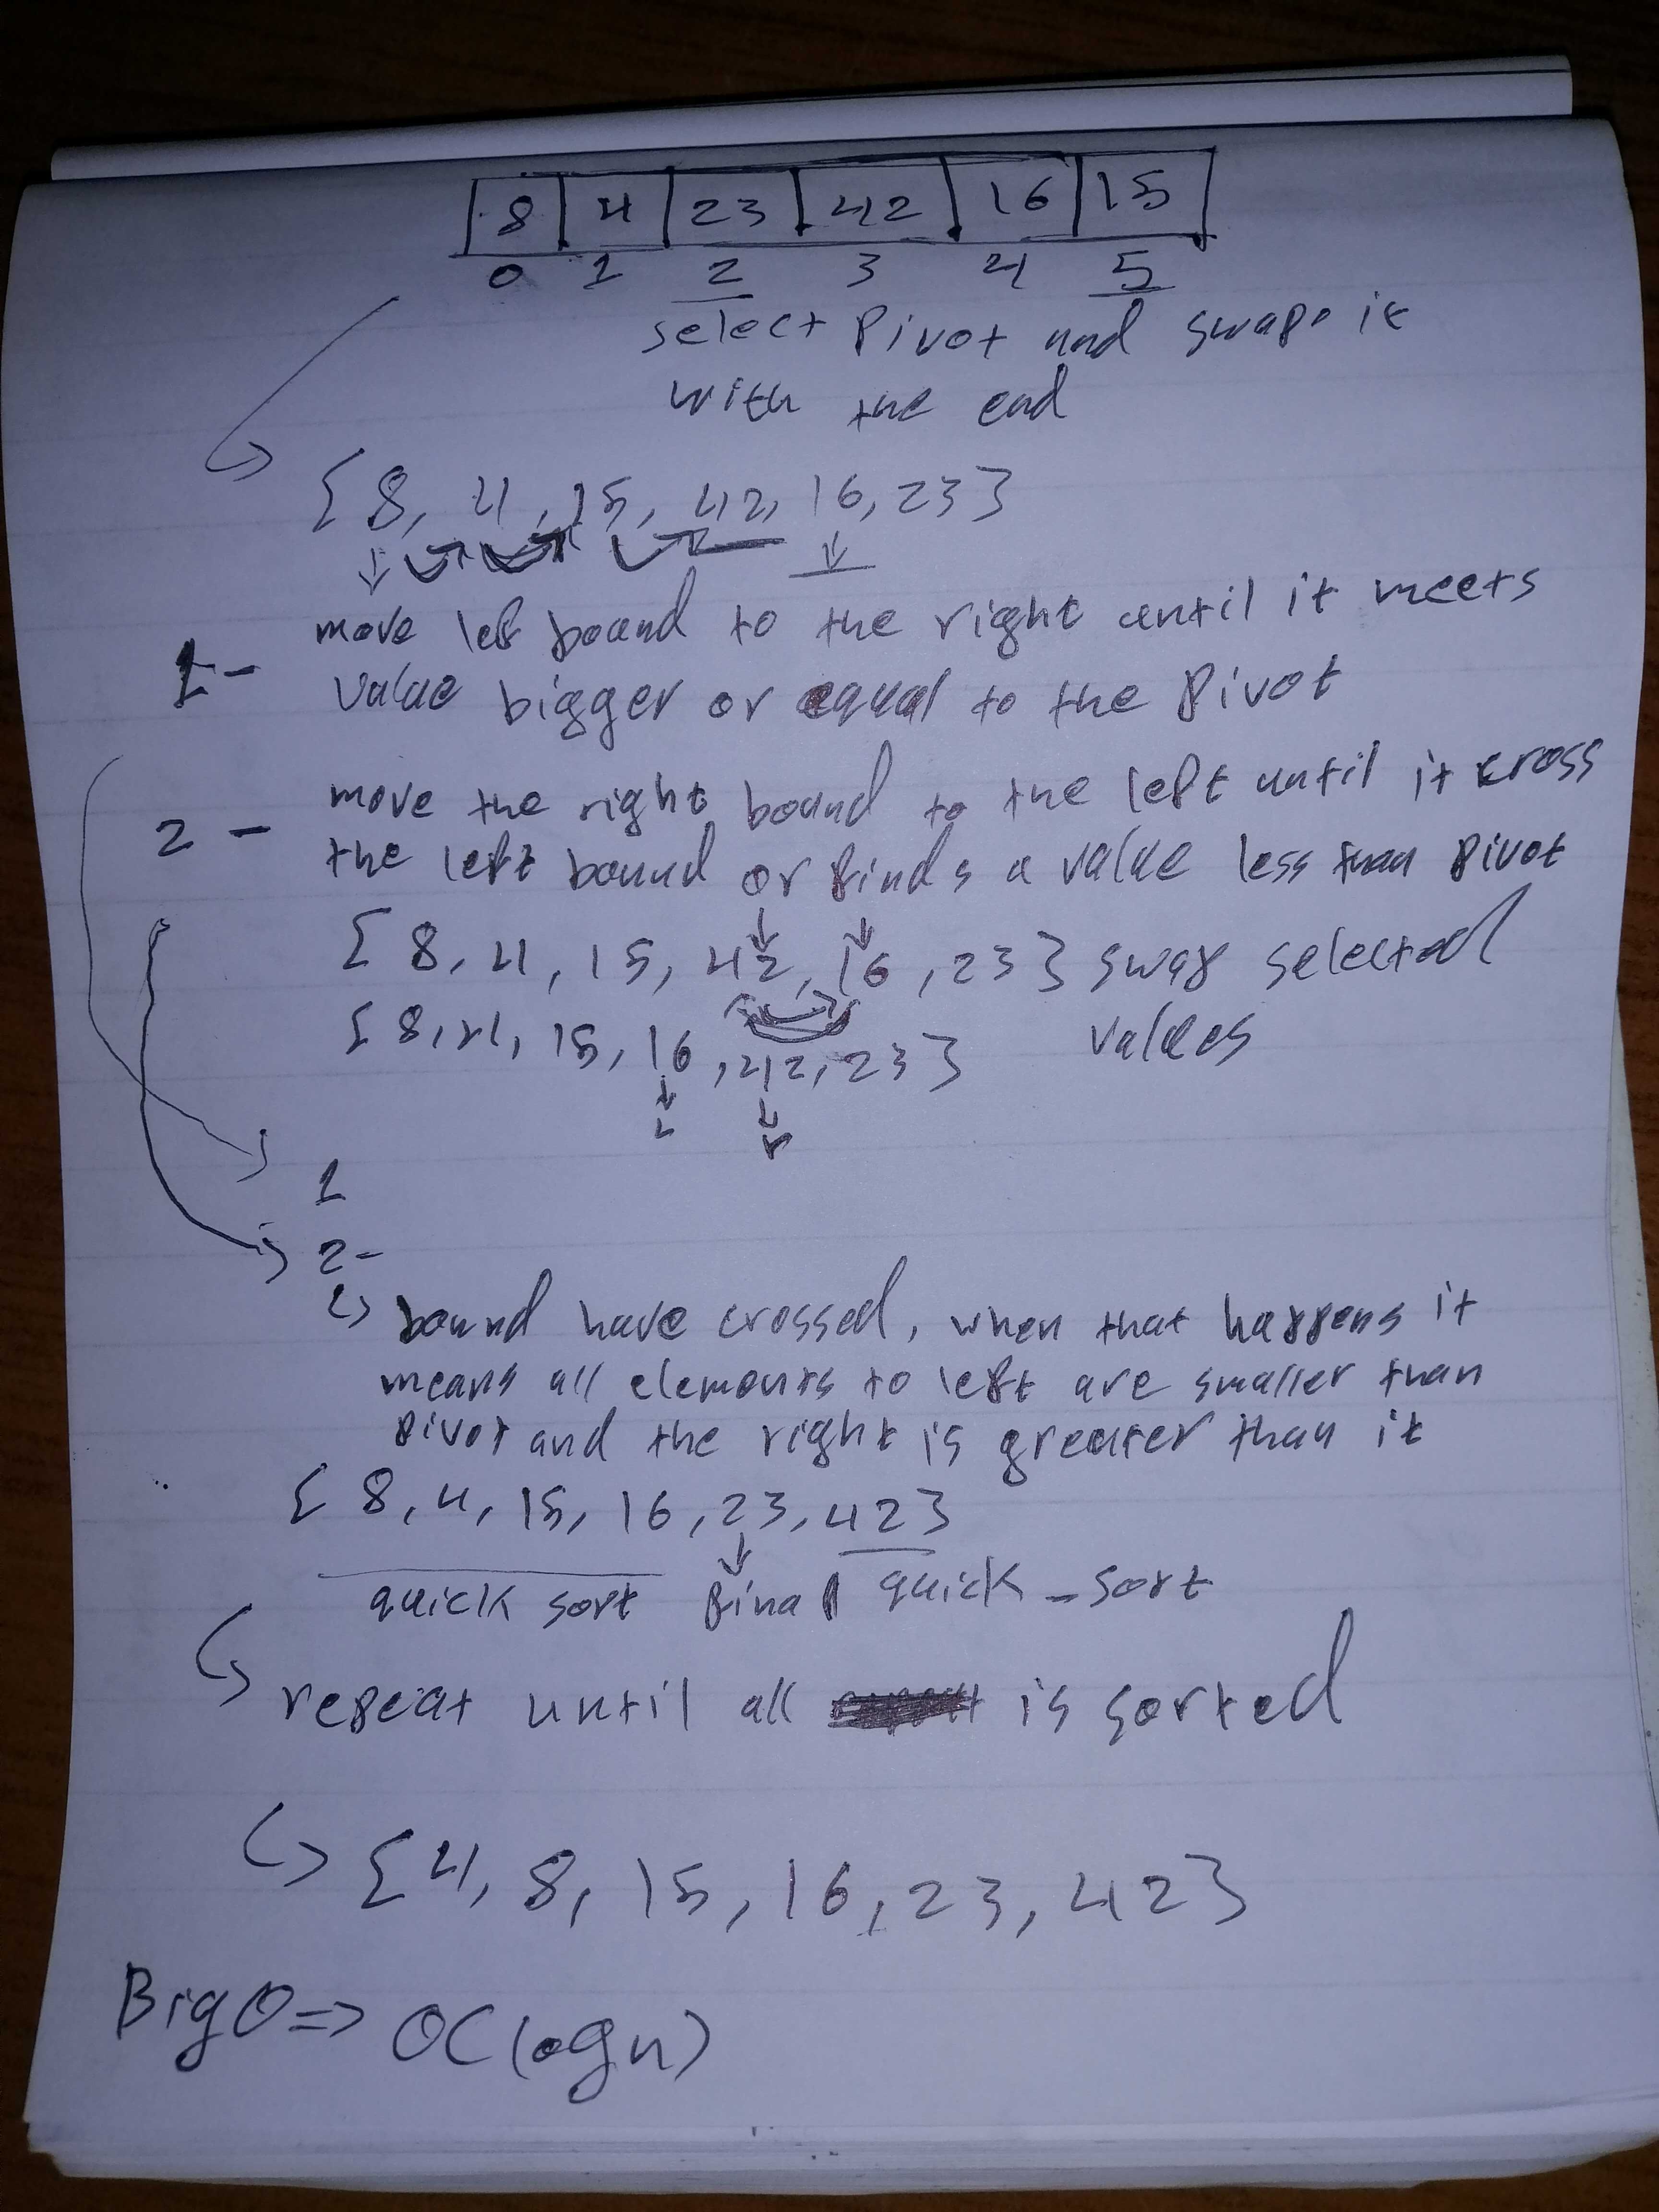 8 4 23 42 16 15
0 1 2 3 4 5
select Pivot and swaps it
with the end
{ 8, 4, 15, 42, 16, 23 }
move left bound to the right until it meets
1- value bigger or equal to the Pivot
move the right bound to the left until it cross
2- the left bound or finds a value less than pivot
{ 8, 4, 15, 42, 16, 23 } swap selected
{ 8, 4, 15, 16, 42, 23 } values
L r
1
2-
bound have crossed, when that happens it
means all elements to left are smaller than
pivot and the right is greater than it
{ 8, 4, 15, 16, 23, 42 }
quick sort final quick-sort
repeat until all is sorted
{ 4, 8, 15, 16, 23, 42 }
Big O => O(logn)